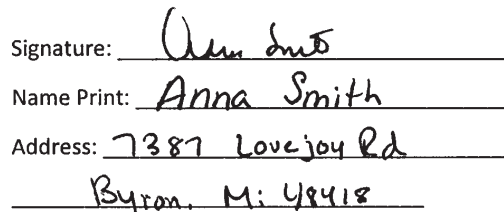 Signature: Ann Smith
Name Print: Anna Smith
Address: 7387 Lovejoy Rd
Byron, Mi 48418